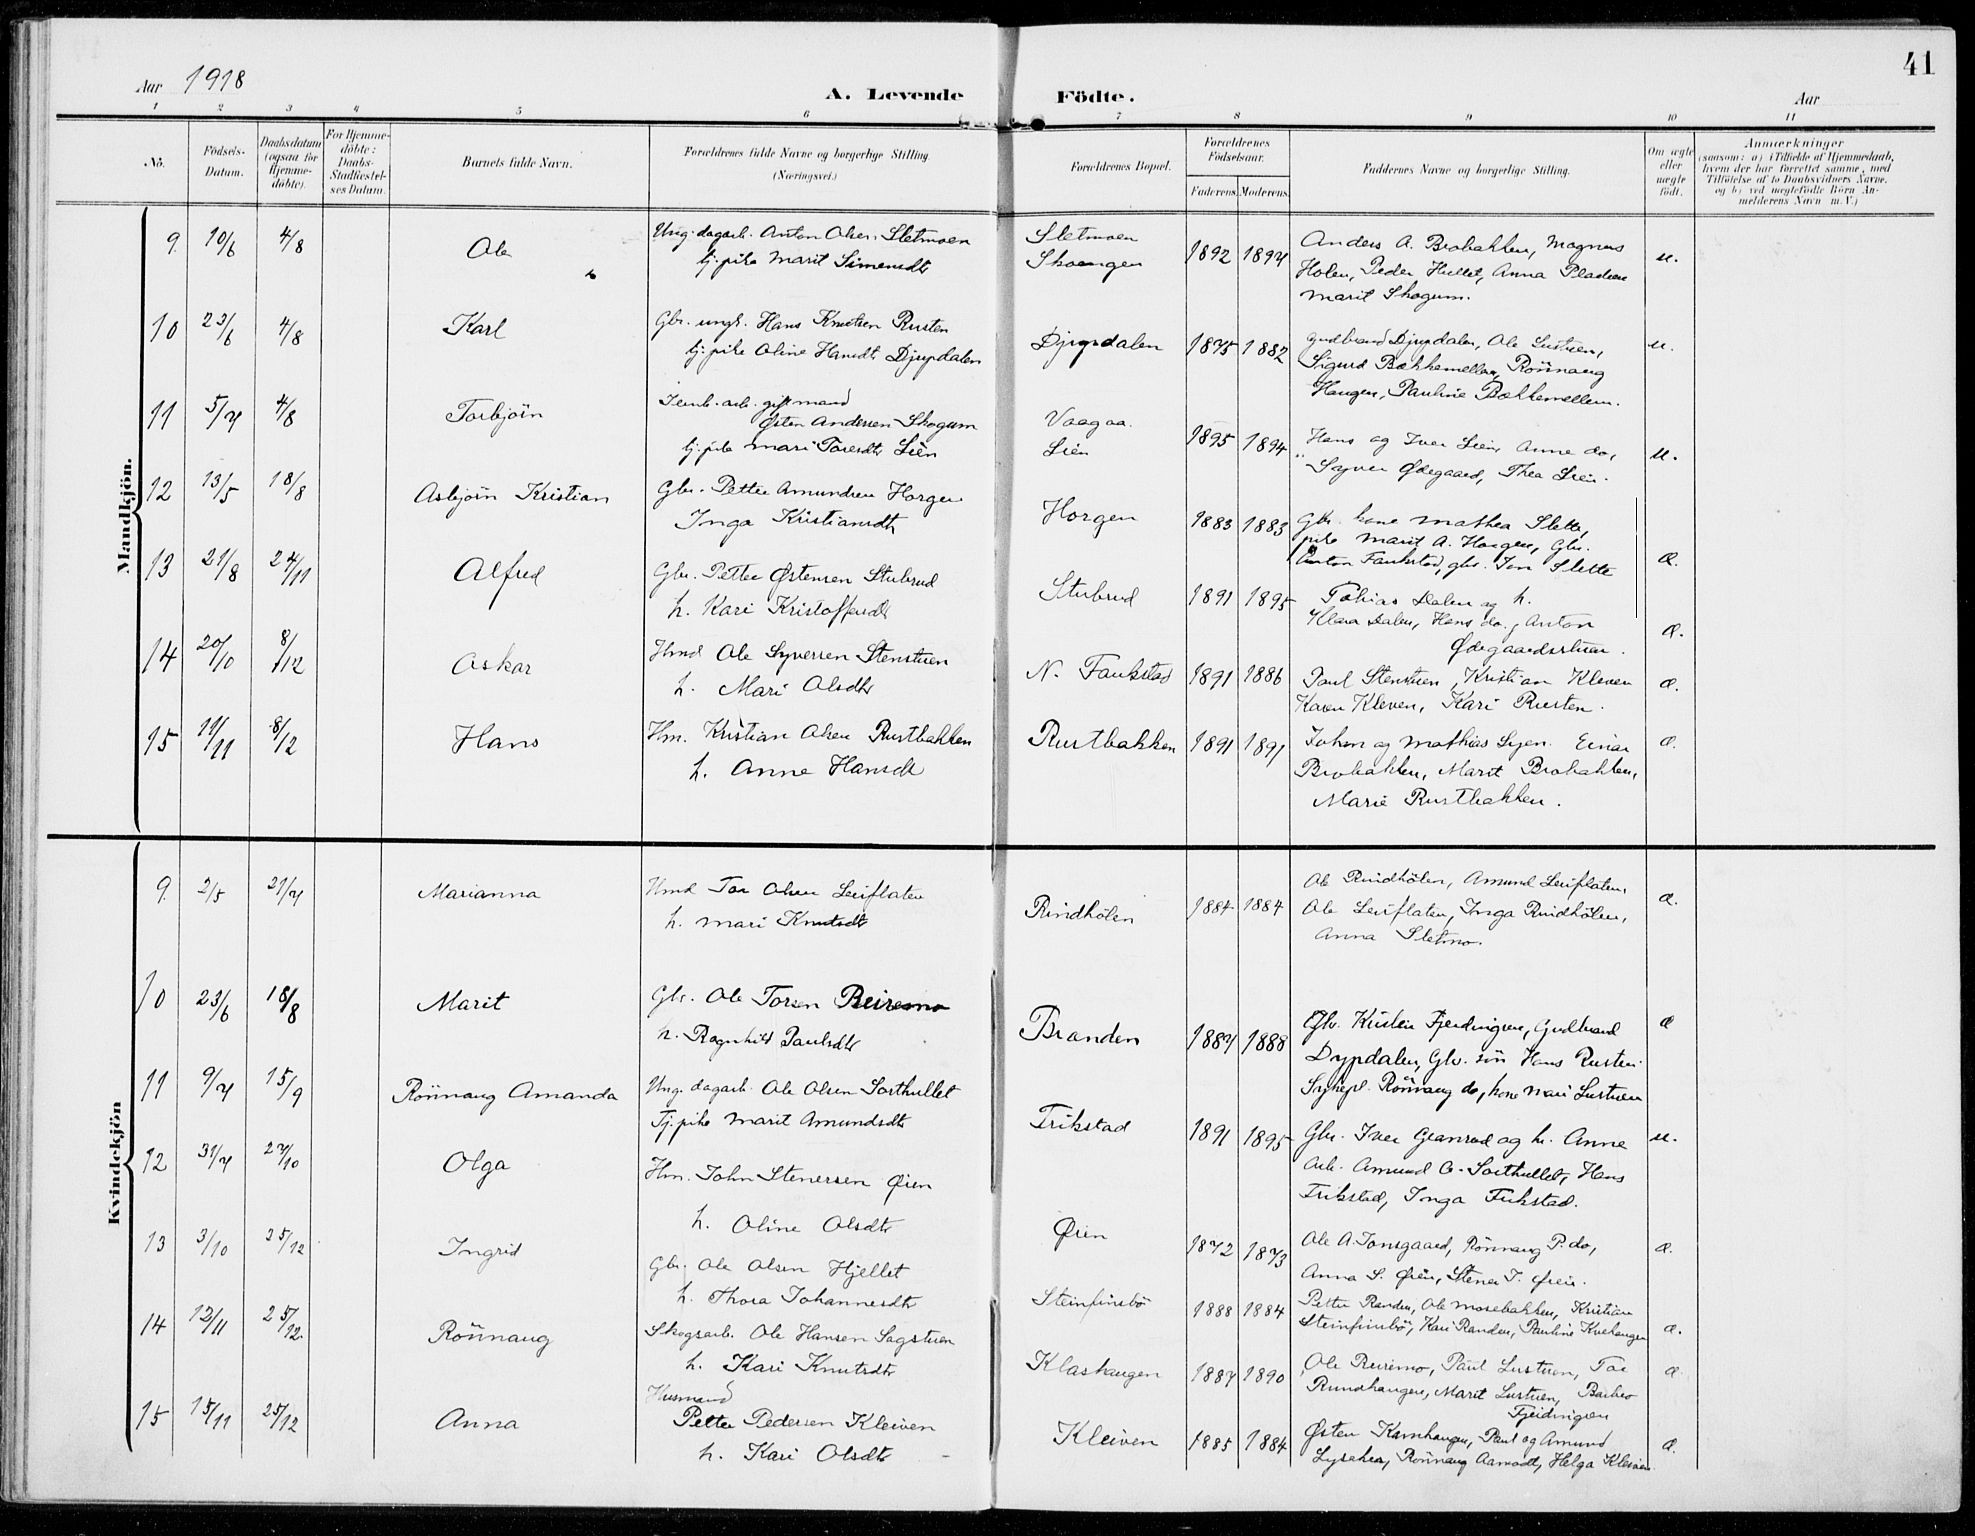 41
Aar 1918
A. Levende Födte.
Aar
1 2 3 4 5 6 7 8 9 10 11
No.
Födsels-
Datum.
Daabsdatum
(ogsaa for
Hjemme-
döbte).
For Hjemme-
döbte:
Daabs-
Stadfæstel-
ses Datum.
Barnets fulde Navn.
Forældrenes fulde Navne og borgerlige Stilling
(Næringsvei.)
Forældrenes Bopæl.
Forældrenes
Födselsaar.
Faderens. Moderens.
Faddernes Navne og borgerlige Stilling.
Om ægte
eller
uægte
födt.
Anmærkninger
(saasom: a) i Tilfælde af Hjemmedaab,
hvem der har forrettet samme, med
Tilföielse af to Daabsvidners Navne.
og b) ved uægtefödte Börn An-
melderens Navn m.V.)
Mandkjön.
9. 10/6 4/8 Ole
Ung. dagarb. Anton Olsen Sletmoen
tj. pike Marit Simensdtr
Sletmoen
Skoengen
1892 1894
Anders A. Brobakken, Magnus
Holen, Peder Hullet, Anna Pladsen
Marit Skogum.
u.
10 23/6 4/8 Karl
Gbr. ungk. Hans Knutsen Rusten
tj. pike Oline Hansdtr Djupdalen
Djupdalen
1875 1882
Gudbrand Djupdalen, Ole Lustuen,
Sigurd Bækkemellem, Rönnaug
Haugen, Pauline Bækkemellem.
u.
11 5/7 4/8 Torbjörn
Jernb. arb. gift mand
Østen Andersen Skogum
tj. pike Mari Toresdtr Lien
Vaagaa.
Lien
1895 1894
Hans og Iver Lien, Anne do,
Syver Ødegaard, Thea Lien.
u.
12 13/5 18/8 Asbjörn Kristian
Gbr. Petter Amundsen Horgen
Inga Kristiansdtr
Horgen
1883 1883
Gbr. kone Mathea Slette,
pike Marit A. Horgen, Gbr.
Anton Faukstad, gbr. Jon Slette
Æ.
13 21/8 24/11 Alfred
Gbr. Petter Østensen Stubrud
h. Kari Kristoffersdtr
Stubrud
1891 1895
Tobias Dalen og h.
Klara Dalen, Hans do., Anton
Ødegaardsstuen.
Æ.
14 20/10 8/12 Oskar
Hmd Ole Syversen Stenstuen
h. Mari Olsdtr
N. Faukstad
1891 1886
Paul Stenstuen, Kristian Kleven
Karen Kleven, Kari Rusten.
Æ.
15 11/11 8/12 Hans
Hm. Kristian Olsen Rustbakken
h. Anne Hansdtr
Rustbakken
1891 1891
Johan og Mathias Lyen. Einar
Brobakken, Marit Brobakken,
Marie Rustbakken.
Æ.
Kvindekjön
9. 2/5 21/7 Marianna
Hmd Tor Olsen Leirflaten
h. Mari Knutsdtr
Rindhölen
1884 1884
Ole Rindhölen, Amund Leirflaten,
Ole Leirflaten, Inga Rindhölen,
Anna Sletmo.
Æ.
10 23/6 18/8 Marit
Gbr. Ole Torsen Reiremo
h. Ragnhild Paulsdtr
Branden
1887 1888
Gbr. Kristen Fjerdingren, Gudbrand
Dypdalen, Gbr. sön Hans Rusten
Sykepl. Rönnaug do, kone Mari Lustuen
Æ
11 9/7 15/9 Rönnaug Amanda
Ung. dagarb. Ole Olsen Sorthullet
Tj. pike Marit Amundsdtr
Trikstad
1891 1895
Gbr. Iver Granrud og h. Anne
Arb. Amund O. Sorthullet, Hans
Trikstad, Inga Trikstad.
u.
12 31/7 27/10 Olga
Hm. John Stenersen Øien
h. Oline Olsdtr
Øien
1872 1873
Ole A. Tonsgaard, Rönnaug P. do,
Anna S. Øien, Stener J. Øien.
Æ.
13 3/10 25/12 Ingrid
Gbr. Ole Olsen Hjellet
h. Thora Johannesdtr
Steinfinsbö
1888 1884
Petter Randen, Ole Mosebakken, Kristian
Steinfinsbö, Kari Randen, Pauline Kvehaugen
Æ.
14 12/11 25/12. Rönnaug
Skogsarb. Ole Hansen Sagstuen
h. Kari Knutsdtr
Klashaugen
1887 1890
Ole Reiremo, Paul Lustuen, Tor
Rundhaugen, Marit Lustuen, Barbro
Fjerdingren
Æ
15 15/11 25/12 Anna
Husmand
Petter Pedersen Kleiven
h. Kari Olsdtr
Kleiven
1885 1884
Østen Kamhaugen, Paul og Amund
Lysehea, Rönnaug Aamodt, Helga Kleiven
Æ.